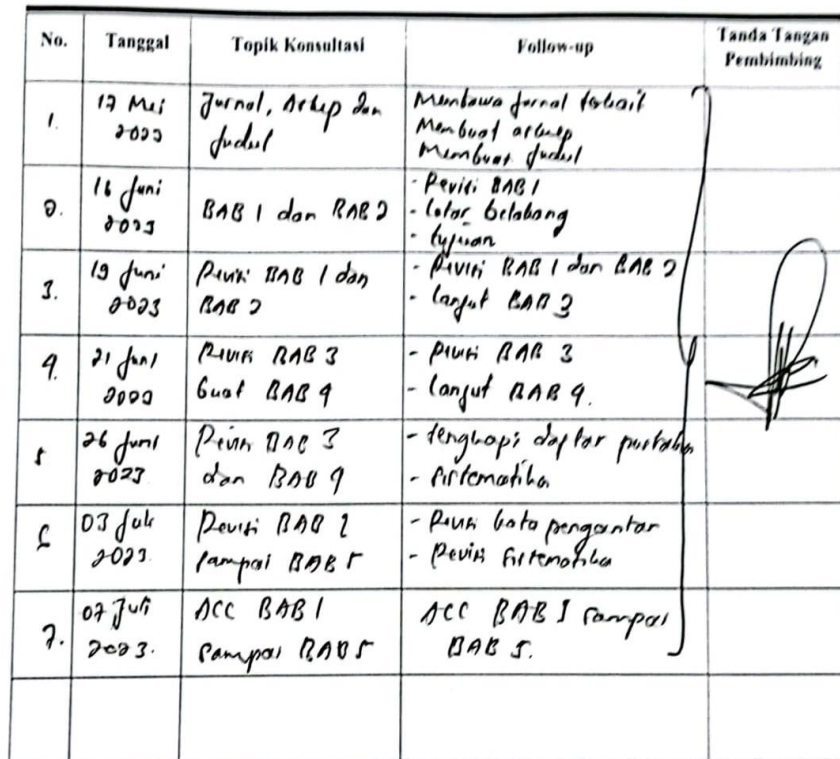 No. Tanggal Topik Konsultasi Follow-up Tanda Tangan
Pembimbing
1. 17 Mei 2023 Jurnal, Askep dan Judul
Membawa jurnal terkait
Membuat askep
Membuat judul
2. 16 Juni 2023 BAB 1 dan BAB 2
- Revisi BAB 1
- latar belakang
- tujuan
3. 19 Juni 2023 Revisi BAB 1 dan BAB 2
- Revisi BAB 1 dan BAB 2
- lanjut BAB 3
4. 21 Juni 2023 Revisi BAB 3
buat BAB 4
- Revisi BAB 3
- lanjut BAB 4.
5 26 Juni 2023 Revisi BAB 3
dan BAB 4
- lengkapi daftar pustaka
- sistematika
6 03 Juli 2023. Revisi BAB 1
sampai BAB 5
- Revisi kata pengantar
- Revisi sistematika
7. 07 Juli 2023. ACC BAB 1
sampai BAB 5
ACC BAB 1 sampai
BAB 5.